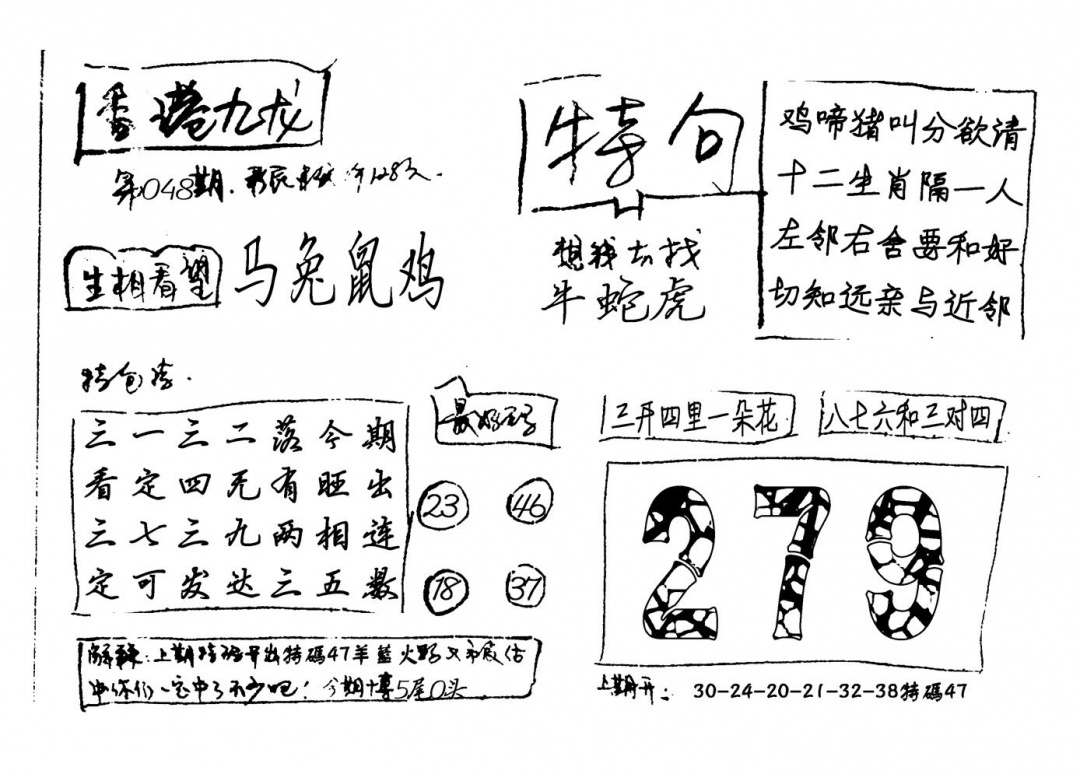 香港九龙
第048期.
生相看望
马兔鼠鸡
特句
想我去找
牛蛇虎
鸡啼猪叫分欲请
十二生肖隔一人
左邻右舍要和好
切知远亲与近邻
三一三二落今期
看定四尾有旺出
三七三九两相连
定可发达三五数
23
46
18
37
三开四里一朵花
八七六和三对四
279
上期开出特碼47羊蓝火
今期博5尾0头
上期开: 30-24-20-21-32-38特碼47